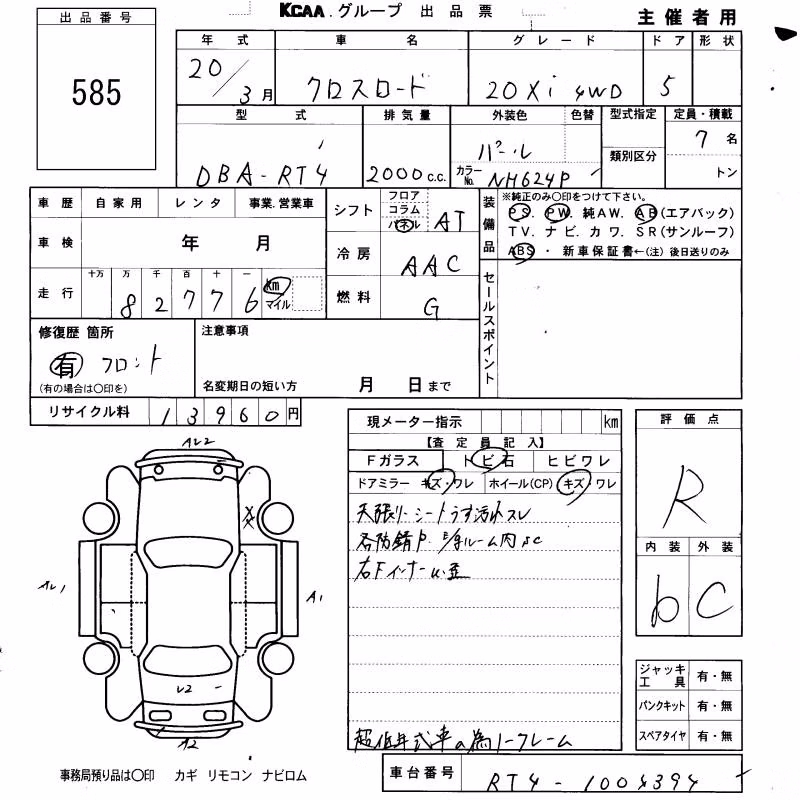 出品番号
585
KCAA.グループ 出品票
主催者用
年式 車名 グレード ドア 形状
20/3月 クロスロード 20Xi 4WD 5
型式 排気量 外装色 色替 型式指定 定員・積載
DBA-RT4 2000c.c. パール 7名
カラーNo. NH624P 類別区分 トン
車歴 自家用 レンタ 事業.営業車
車検 年 月
走行 十万 万 千 百 十 一
82776 km マイル
シフト フロア コラム パネル AT
冷房 AAC
燃料 G
装備品
※純正のみ〇印をつけて下さい。
PS. PW. 純AW. AB(エアバック)
TV. ナビ. カワ. SR(サンルーフ)
ABS・ 新車保証書←(注)後日送りのみ
セールスポイント
修復歴 箇所
有 フロント
(有の場合は〇印を)
注意事項
名変期日の短い方 月 日まで
リサイクル料 13960円
現メーター指示 km
【査定員記入】
Fガラス トビ石 ヒビワレ
ドアミラー キズ・ワレ ホイール(CP) キズ・ワレ
天張リ・シートうす汚れスレ
各防錆P. ルーム内SC
右Fインナー
超低年式車の為ノークレーム
評価点
R
内装 外装
b C
ジャッキ工具 有・無
パンクキット 有・無
スペアタイヤ 有・無
AU2
AU1
A1
U2
A2
事務局預り品は〇印 カギ リモコン ナビロム
車台番号 RT4-1004394